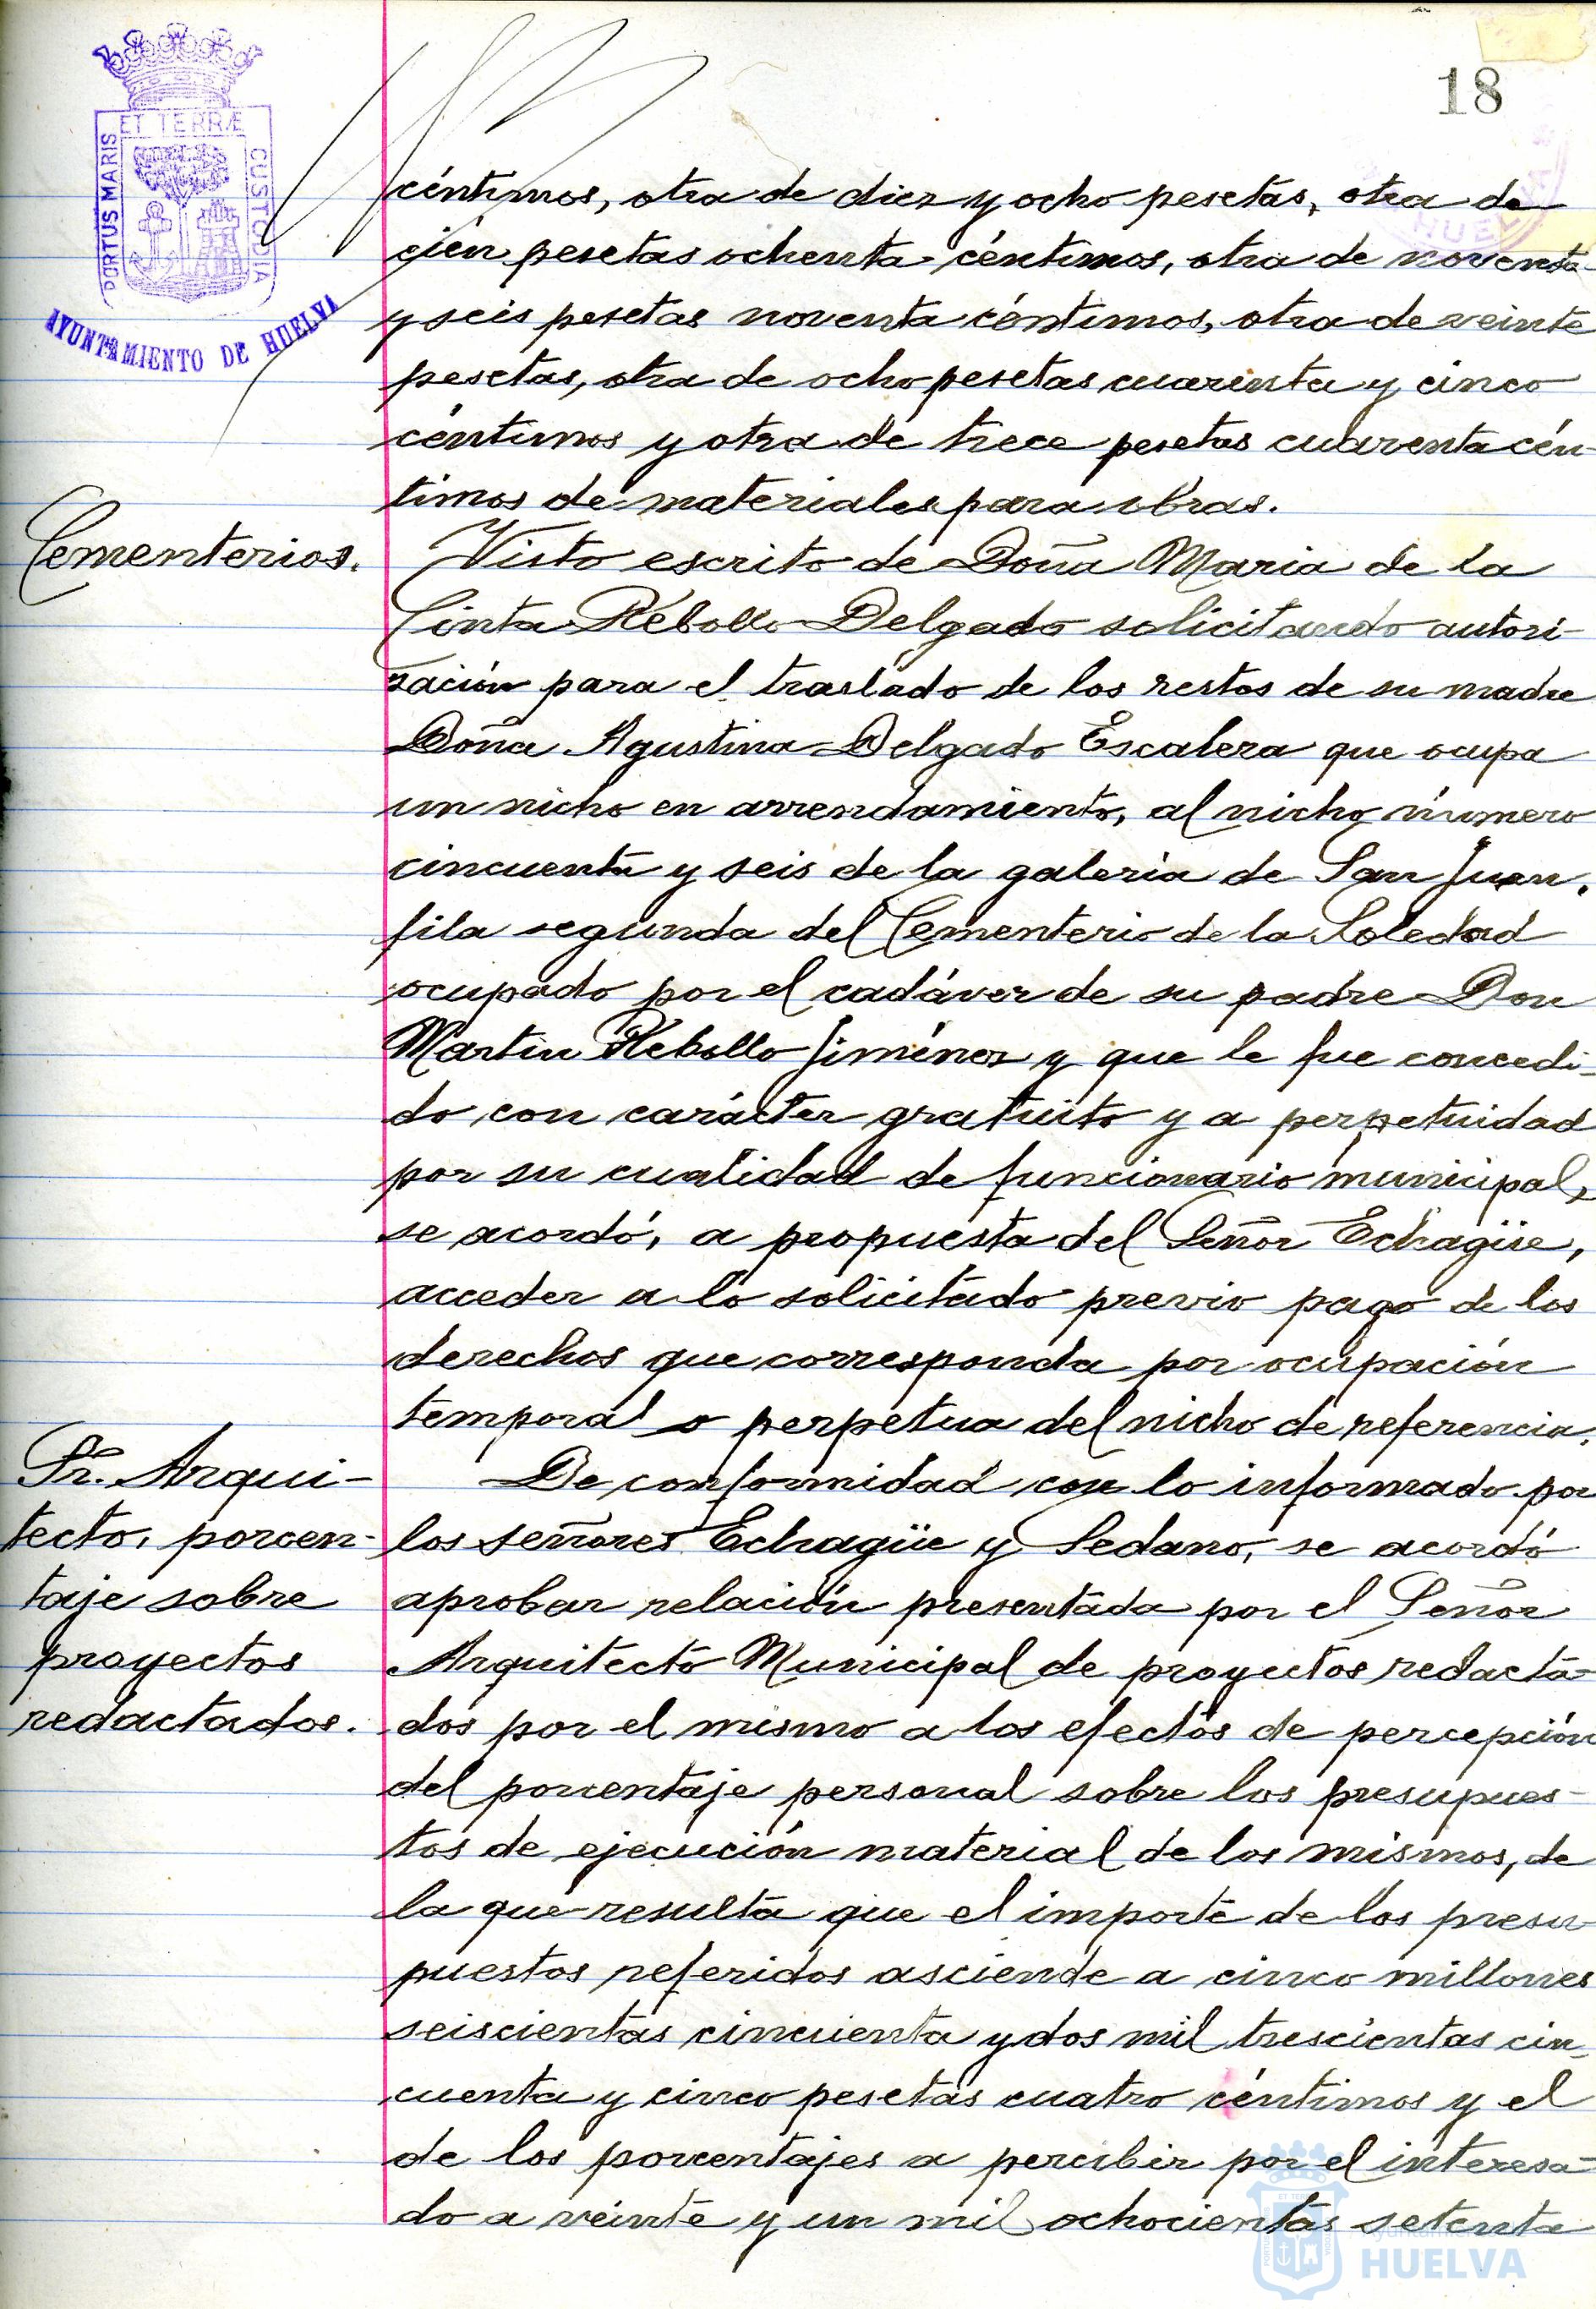 18
ET TERRÆ
PORTUS MARIS
CUSTODIA
AYUNTAMIENTO DE HUELVA
céntimos, otra de diez y ocho pesetas, otra de
cien pesetas ochenta céntimos, otra de noventa
y seis pesetas noventa céntimos, otra de veinte
pesetas, otra de ocho pesetas cuarenta y cinco
céntimos y otra de trece pesetas cuarenta cén-
timos de materiales para obras.
Cementerios.
Visto escrito de Doña Maria de la
Cinta Rebollo Delgado solicitando autori-
zación para el traslado de los restos de su madre
Doña Agustina Delgado Escalera que ocupa
un nicho en arrendamiento, al nicho número
cincuenta y seis de la galeria de San Juan,
fila segunda del Cementerio de la Soledad
ocupado por el cadáver de su padre Don
Martin Rebollo Jiménez y que le fue concedi-
do con carácter gratuito y a perpetuidad
por su cualidad de funcionario municipal,
se acordó, a propuesta del Señor Echagüe,
acceder a lo solicitado previo pago de los
derechos que corresponda por ocupación
temporal o perpetua del nicho de referencia.
Sr. Arqui-
tecto, porcen-
taje sobre
proyectos
redactados.
De conformidad con lo informado por
los señores Echagüe y Sedano, se acordó
aprobar relación presentada por el Señor
Arquitecto Municipal de proyectos redacta-
dos por el mismo a los efectos de percepción
del porcentaje personal sobre los presupues-
tos de ejecución material de los mismos, de
la que resulta que el importe de los presu-
puestos referidos asciende a cinco millones
seiscientas cincuenta y dos mil trescientas cin-
cuenta y cinco pesetas cuatro céntimos y el
de los porcentajes a percibir por el interesa-
do a veinte y un mil ochocientas setenta
HUELVA